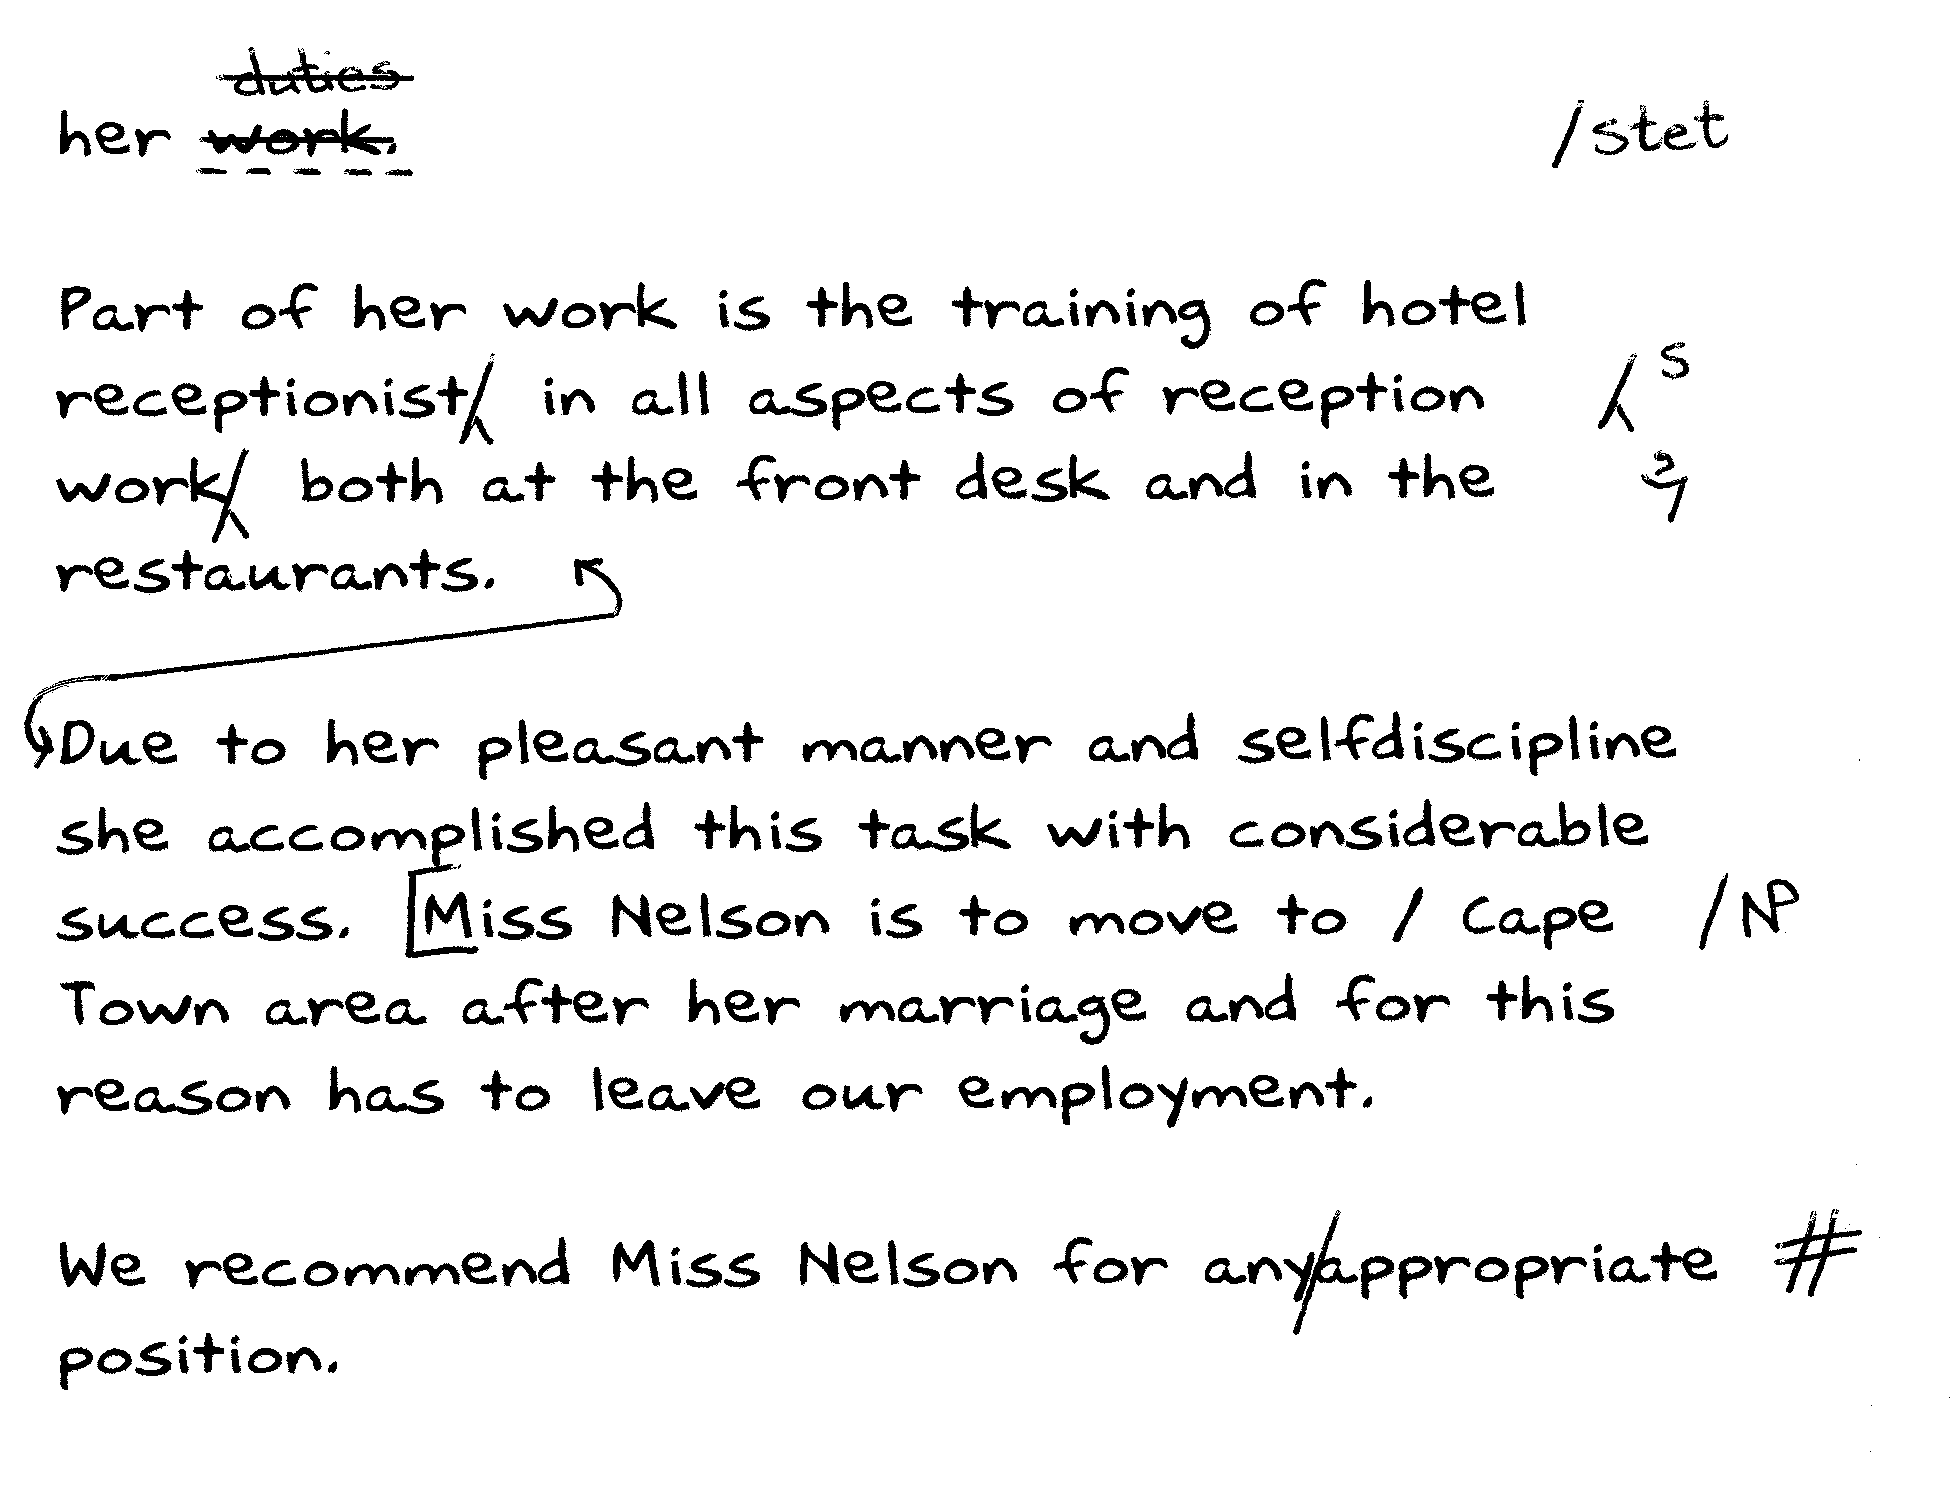 duties
her work. /stet
Part of her work is the training of hotel
receptionist/ in all aspects of reception / s
work/ both at the front desk and in the
restaurants.
Due to her pleasant manner and selfdiscipline
she accomplished this task with considerable
success. [Miss Nelson is to move to / Cape /NP
Town area after her marriage and for this
reason has to leave our employment.
We recommend Miss Nelson for any/appropriate #
position.